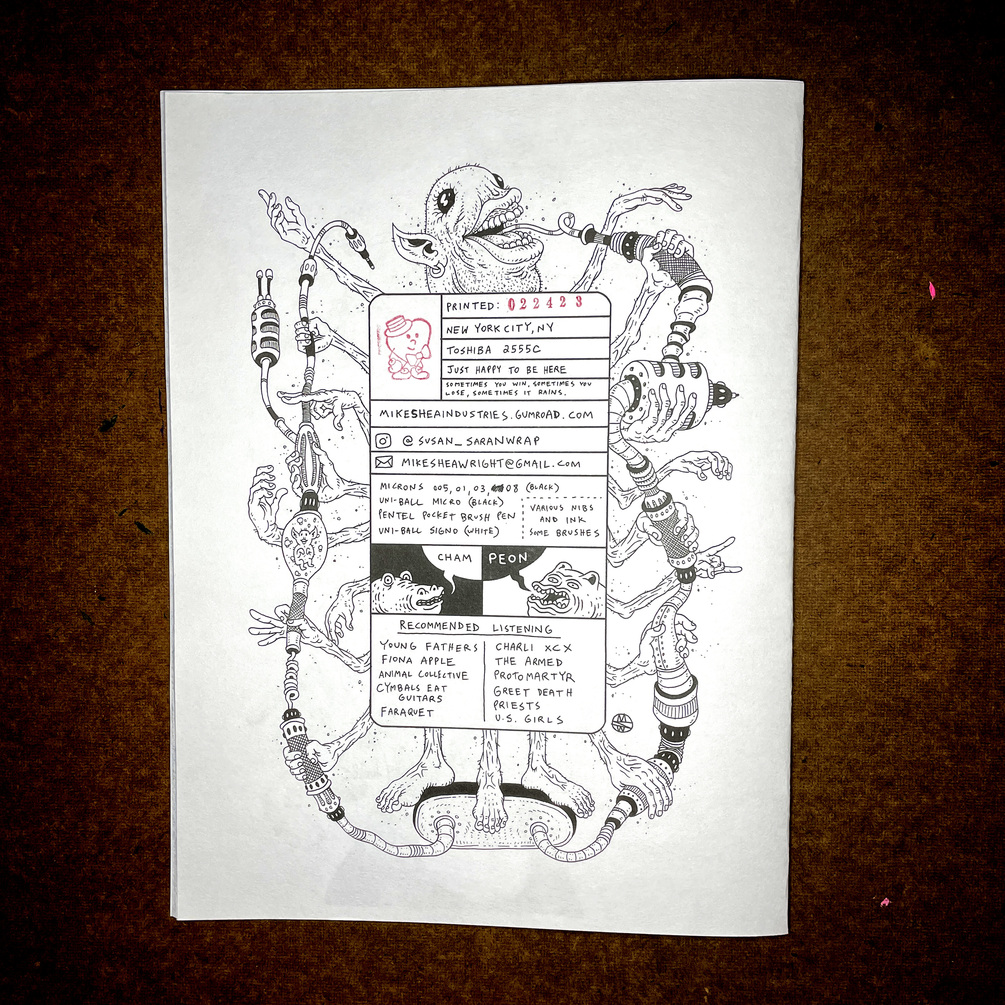 PRINTED: 022423
NEW YORK CITY, NY
TOSHIBA 2555C
JUST HAPPY TO BE HERE
SOMETIMES YOU WIN, SOMETIMES YOU
LOSE, SOMETIMES IT RAINS.
MIKESHEAINDUSTRIES.GUMROAD.COM
@SUSAN_SARANWRAP
MIKESHEAWRIGHT@GMAIL.COM
MICRONS 005, 01, 03, 08 (BLACK)
UNI-BALL MICRO (BLACK)
PENTEL POCKET BRUSH PEN
UNI-BALL SIGNO (WHITE)
VARIOUS NIBS
AND INK
SOME BRUSHES
CHAM PEON
RECOMMENDED LISTENING
YOUNG FATHERS
FIONA APPLE
ANIMAL COLLECTIVE
CYMBALS EAT
GUITARS
FARAQUET
CHARLI XCX
THE ARMED
PROTOMARTYR
GREET DEATH
PRIESTS
U.S. GIRLS